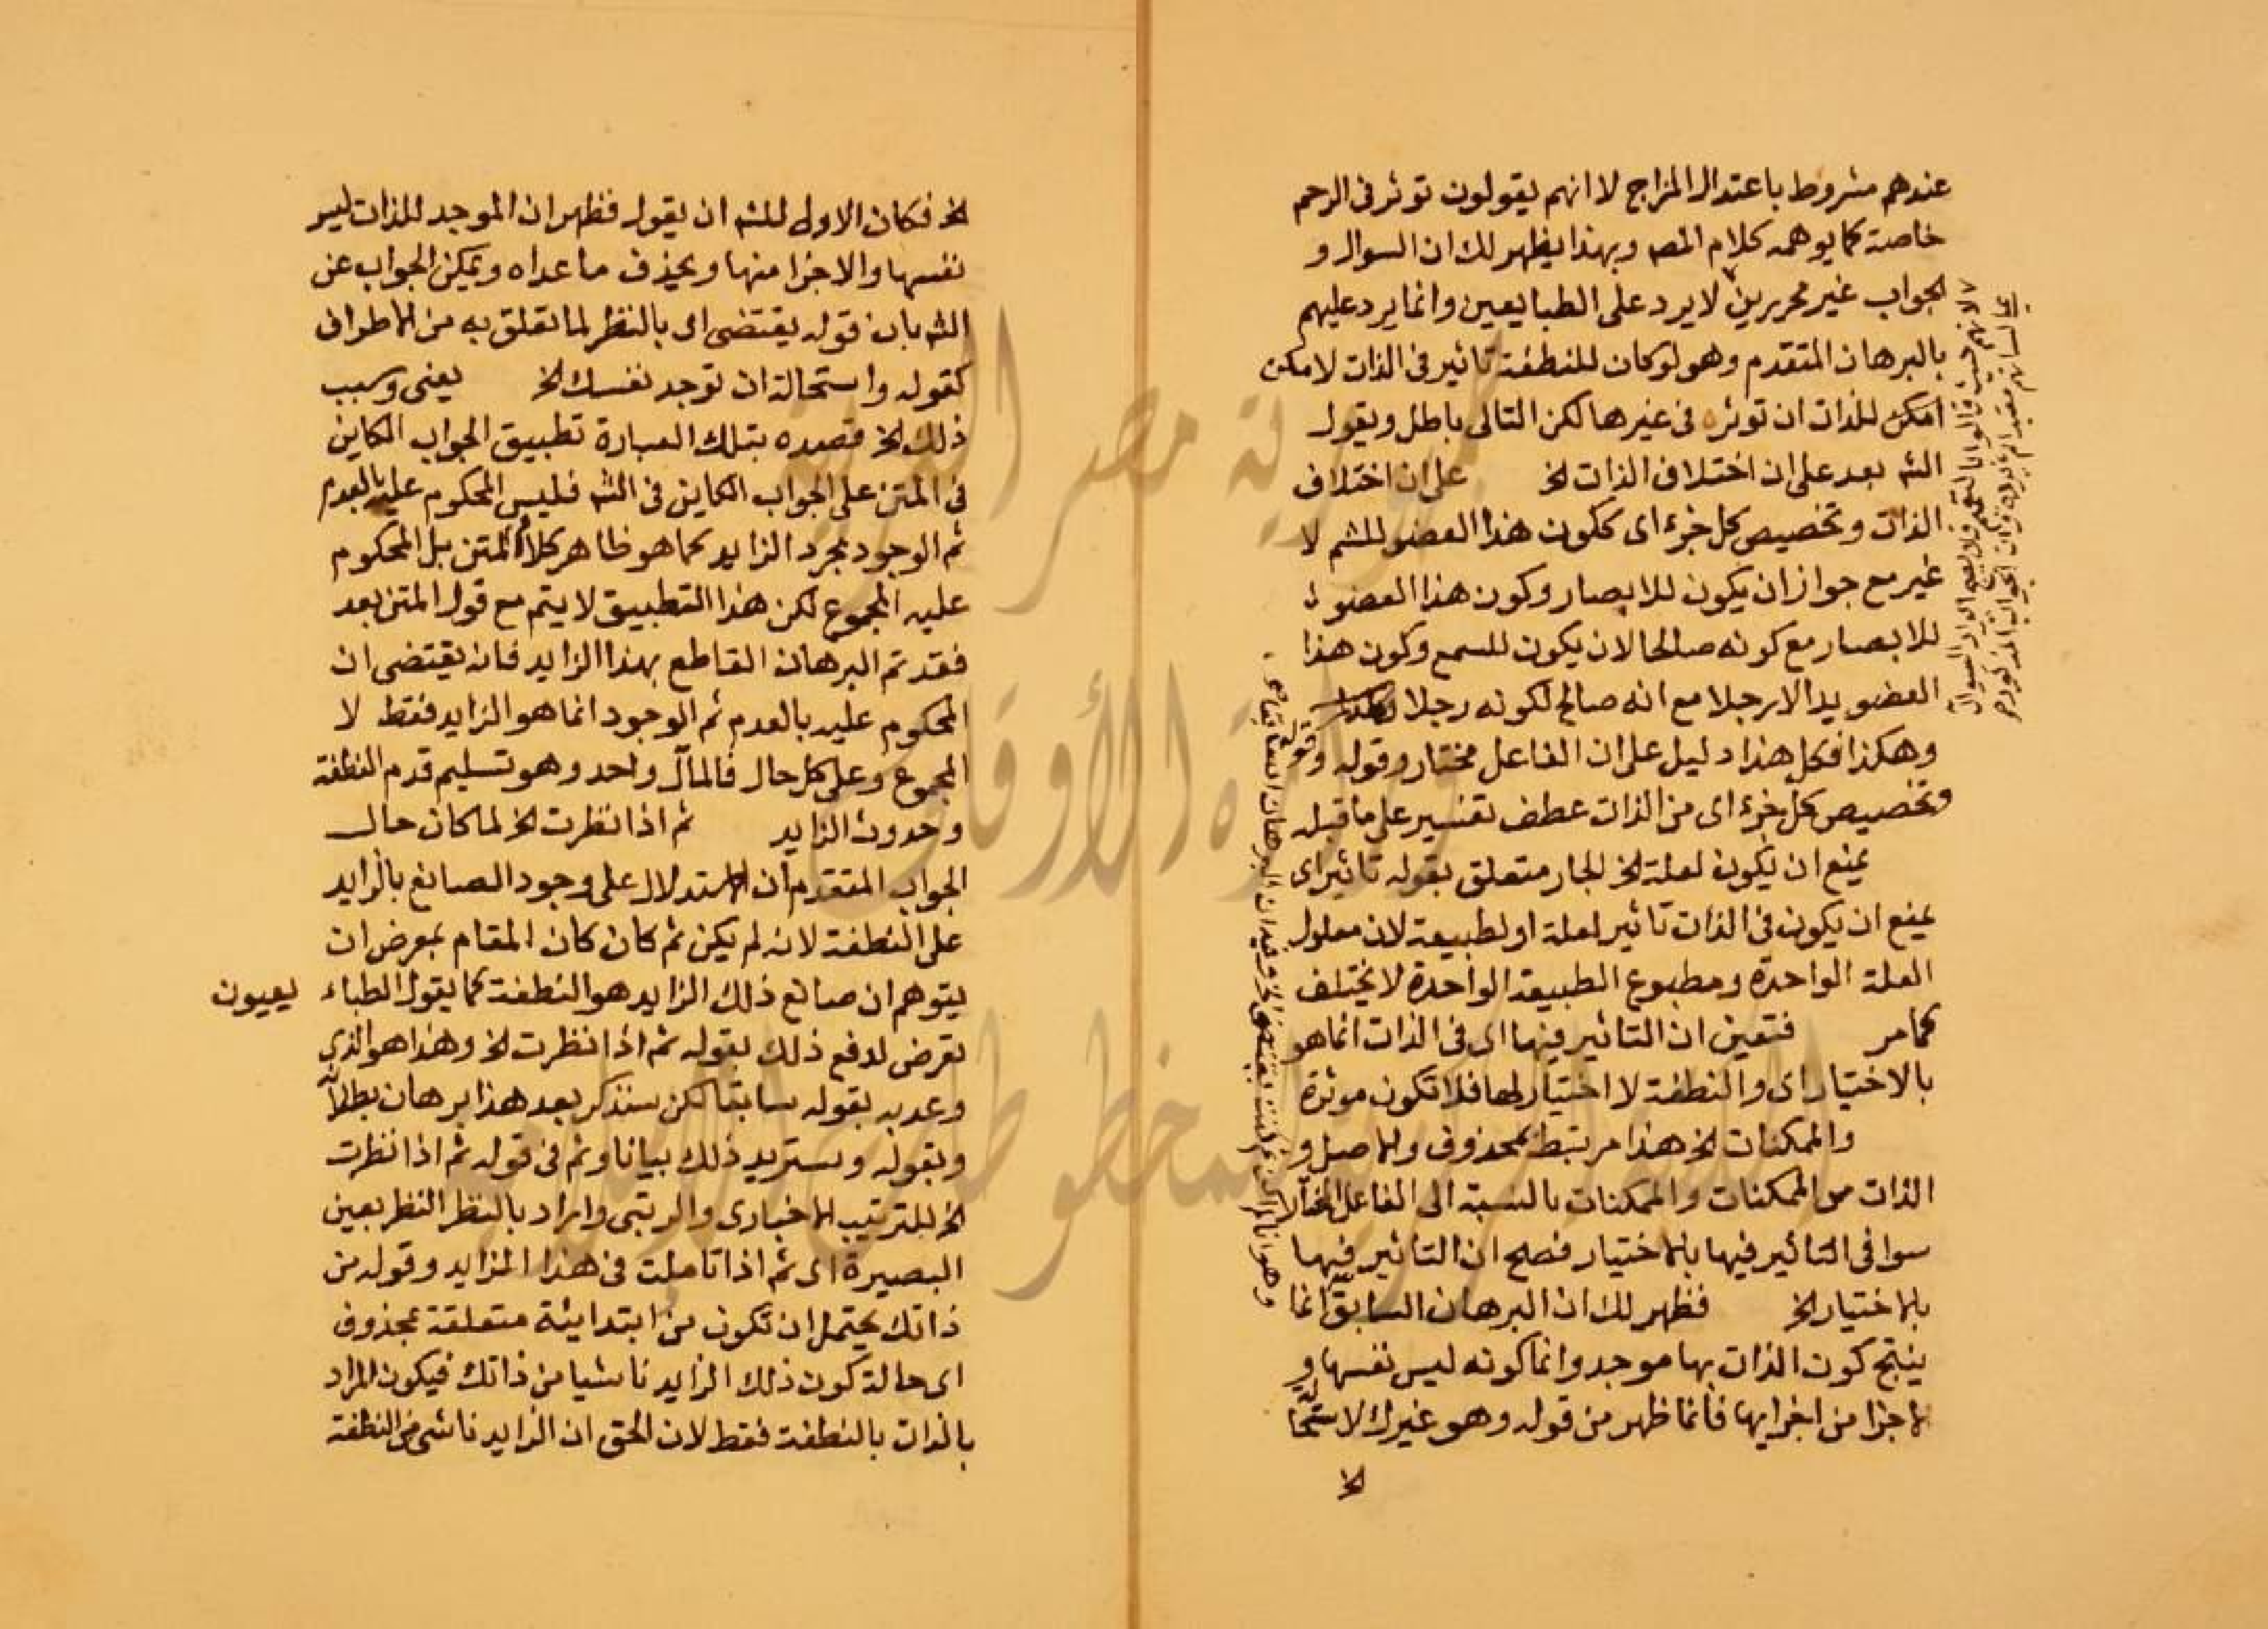 عندهم مشروط باعتدال المزاج لا انهم يقولون توثر فى الرحم
خاصة كما يوهمه كلام المصـ وبهذا يظهر لك ان السوال و
الجواب غير محررين لا يرد على الطبايعين وانما يرد عليهم
بالبرهان المتقدم وهو لو كان للنطفة تاثير فى الذات لامكن
امكن للذات ان توثر فى غيرها لكن التالى باطل ويقول
الشـ بعد على ان اختلاف الذات الخ على ان اختلاف
الذات وتخصيص كل جزء اى ككون هذا العضو للشم لا
غير مع جواز ان يكون للابصار وكون هذا العضو
للابصار مع كونه صالحا لان يكون للسمع وكون هذا
العضو يدا لا رجلا مع انه صالح لكونه رجلا
وهكذا فكل هذا دليل على ان الفاعل مختار وقوله
وتخصيص كل جزء اى من الذات عطف تفسير على ما قبله
يمنع ان يكون لعلة الخ الجار متعلق بقوله تاثير اى
يمنع ان يكون فى الذات تاثير لعلة او لطبيعة لان معلول
العلة الواحدة ومطبوع الطبيعة الواحدة لا يختلف
كما مر فتعين ان التاثير فيها اى فى الذات انما هو
بالاختيار اى والنطفة لا اختيار لها فلا تكون موثرة
والممكنات الخ هذا مرتبط بمحذوف والاصل و
الذات من الممكنات والممكنات بالنسبة الى الفاعل
سوا فى التاثير فيها بالاختيار فصلح ان التاثير فيها
بالاختيار الخ فظهر لك ان البرهان السابق انما
ينتج كون الذات بها موجد وانما كونه ليس نفسها و
لا جزا من اجزايها فانما ظهر من قوله وهو غيرك لاستحالة
الخ
الخ فكان الاولى للشـ ان يقول فظهر ان الموجد للذات ليس
نفسها والاجزا منها ويحذف ما عداه ويمكن الجواب عن
الشـ بان قوله يقتضى اى بالنظر لما تعلق به من الاطراف
كقوله واستحالة ان توجد نفسك الخ يعنى وسبب
ذلك الخ قصده بتلك العبارة تطبيق الجواب الكاين
فى المتن على الجواب الكاين فى الشـ فليس المحكوم عليه بالعدم
ثم الوجود مجرد الزايد كما هو ظاهر كلام المتن بل المحكوم
عليه المجموع لكن هذا التطبيق لا يتم مع قول المتن بعد
فقد تم البرهان القاطع بهذا الزايد فانه يقتضى ان
المحكوم عليه بالعدم ثم الوجود انما هو الزايد فقط لا
المجموع وعلى كل حال فالمآل واحد وهو تسليم قدم النطفة
وحدوث الزايد ثم اذا نظرت الخ لما كان حال
الجواب المتقدم ان الاستدلال على وجود الصانع بالزايد
على النطفة لانه لم يكن ثم كان كان المقام بمعرض ان
يتوهم ان صانع ذلك الزايد هو النطفة كما يقول الطباء يعيون
تعرض لدفع ذلك بقوله ثم اذا نظرت الخ وهذا هو الذى
وعد به بقوله سابقا لكن سنذكر بعد هذا برهان بطلا
وبقوله وستريد ذلك بيانا وثم فى قوله ثم اذا نظرت
الخ للترتيب الاخبارى والرتبى واراد بالنظر النظر بعين
البصيرة اى ثم اذا تاملت فى هذا الزايد وقوله من
ذاتك يحتمل ان تكون من ابتدايئة متعلقة بمحذوف
اى حالة كون ذلك الزايد ناشيا من ذاتك فيكون المراد
بالذات بالنطفة فقط لان الحق ان الزايد ناشى من النطفة